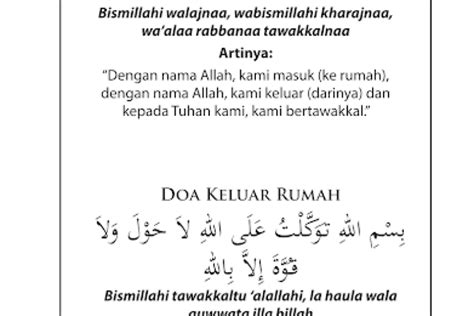 Bismillahi walajnaa, wabismillahi kharajnaa,
wa’alaa rabbanaa tawakkalnaa
Artinya:
“Dengan nama Allah, kami masuk (ke rumah),
dengan nama Allah, kami keluar (darinya) dan
kepada Tuhan kami, kami bertawakkal.”
DOA KELUAR RUMAH
بِسْمِ اللهِ تَوَكَّلْتُ عَلَى اللهِ لاَ حَوْلَ وَلاَ
قُوَّةَ إِلاَّ بِاللهِ
Bismillahi tawakkaltu ‘alallahi, la haula wala
quwwata illa billah